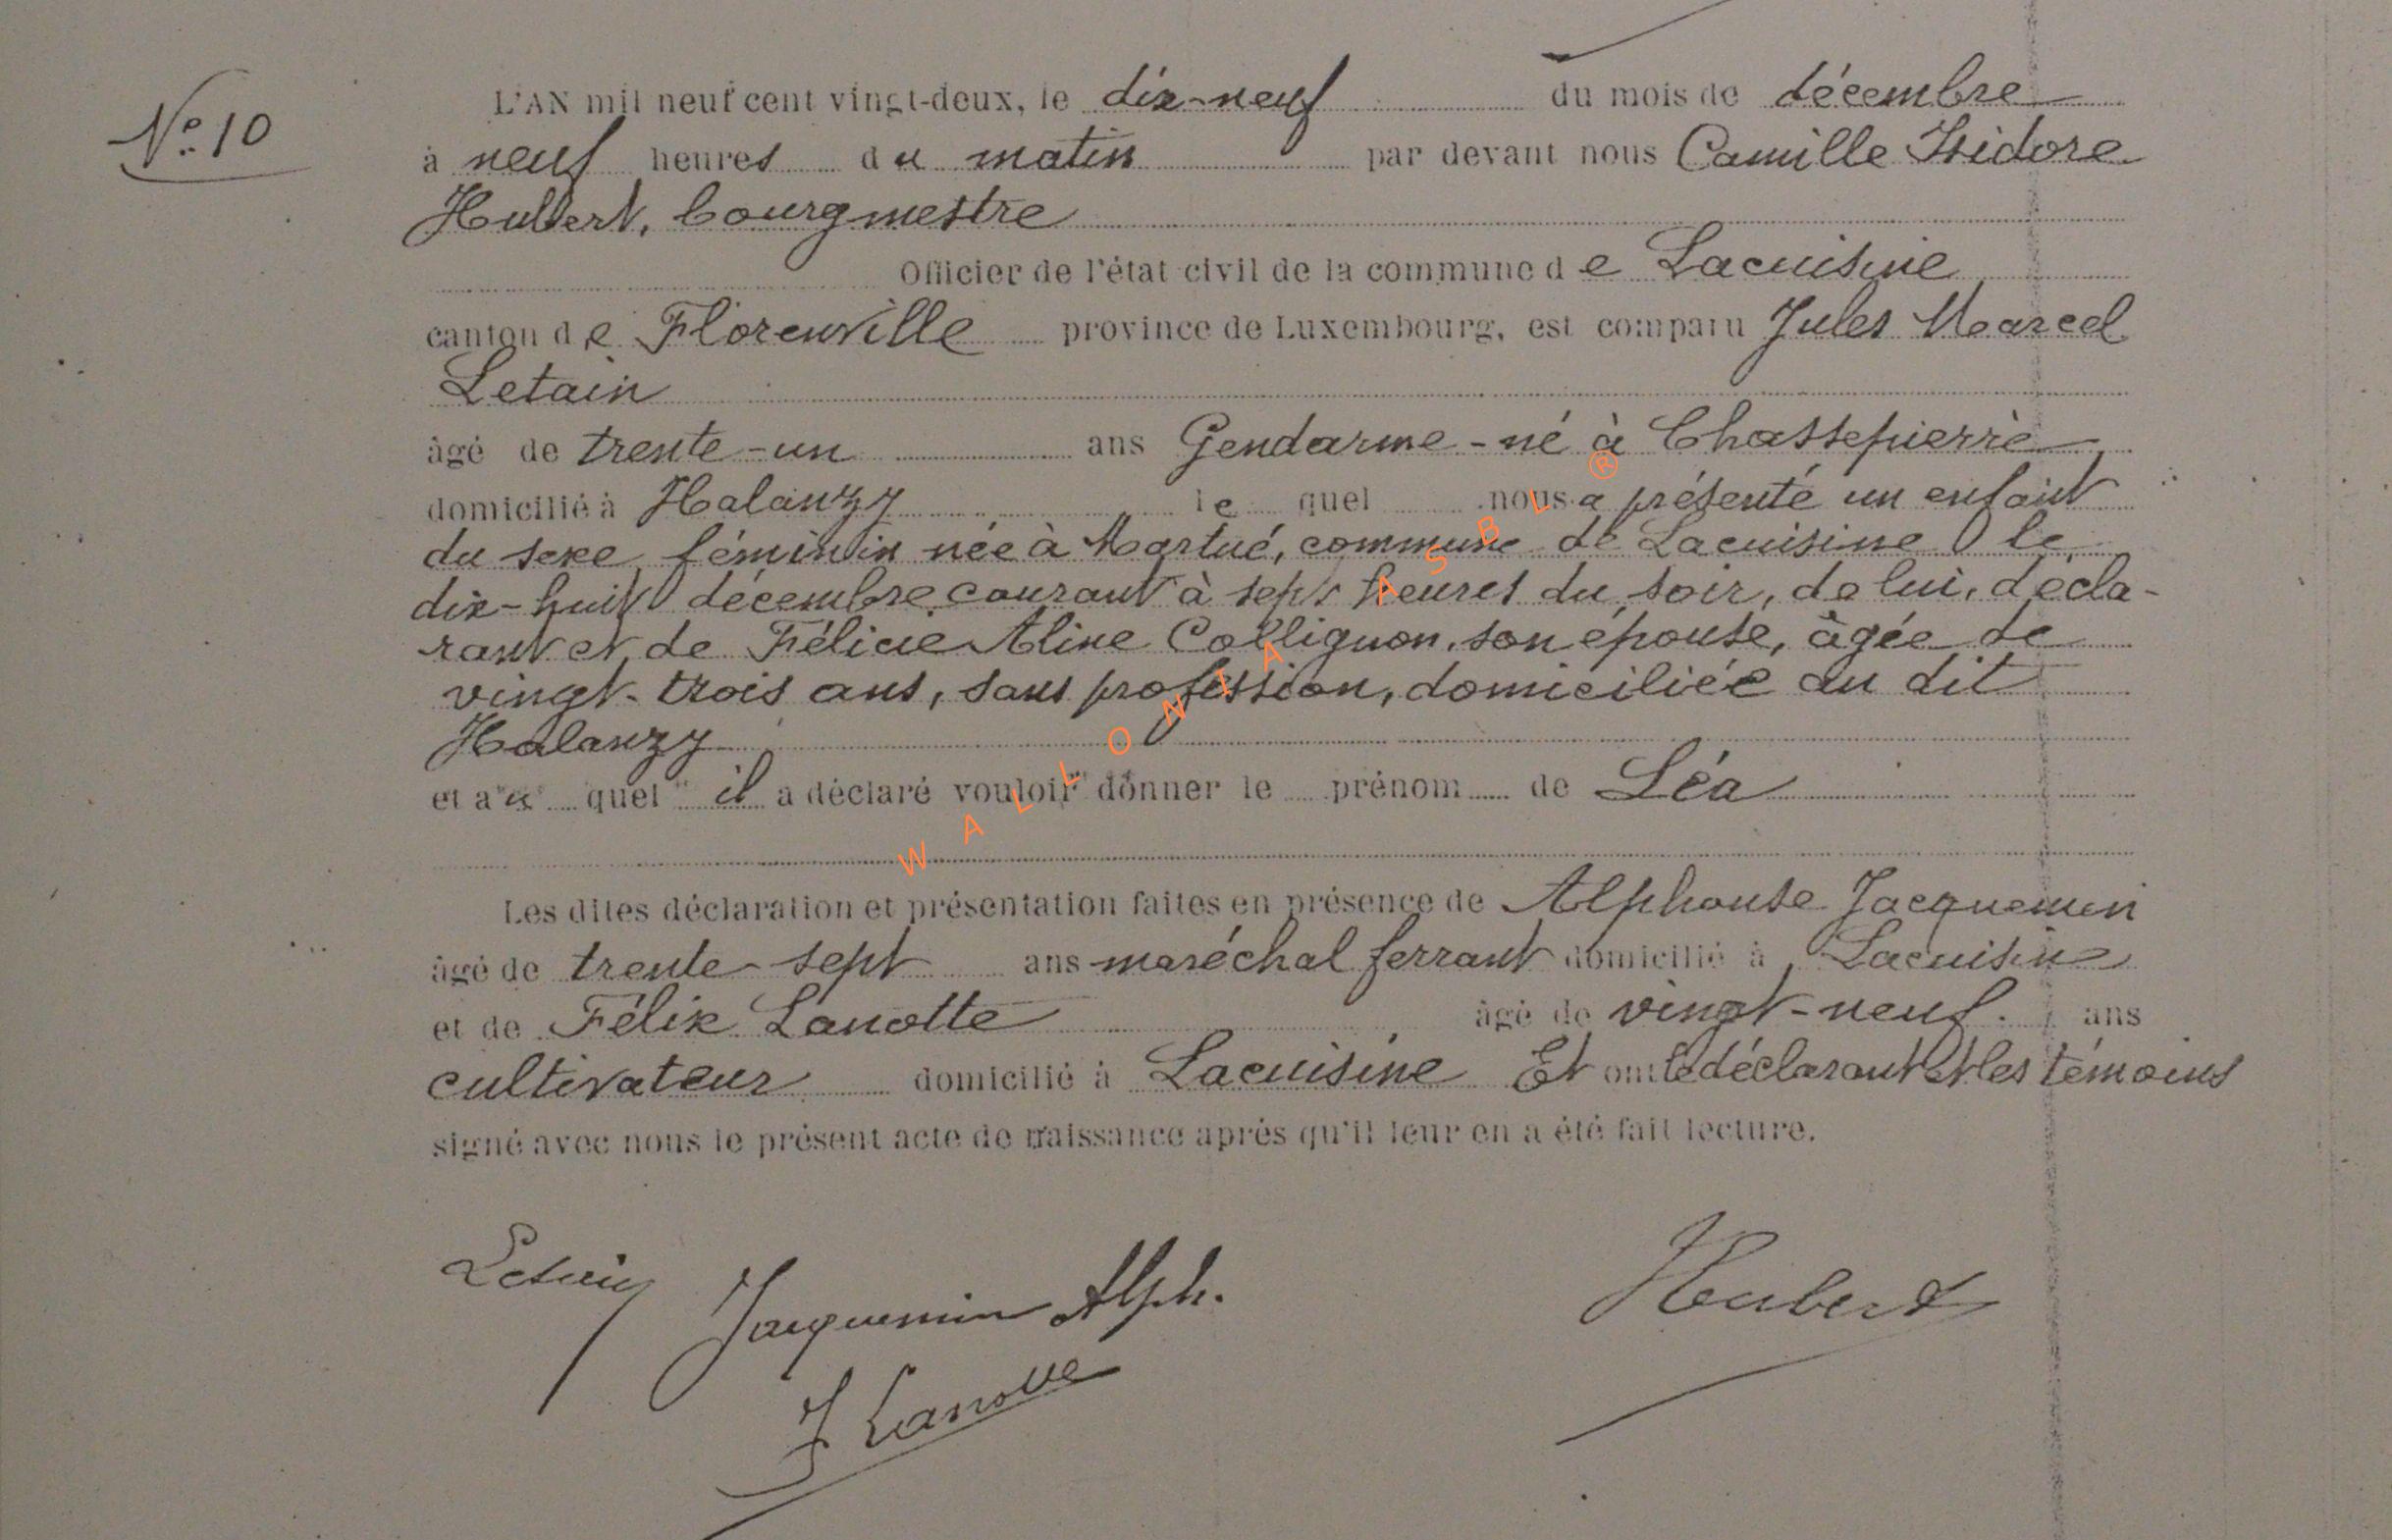 N° 10
L'AN mil neuf cent vingt-deux, le dix-neuf du mois de décembre
à neuf heures du matin par devant nous Camille Isidore
Hubert, bourgmestre
Officier de l'état civil de la commune de Lacuisine
canton de Florenville province de Luxembourg, est comparu Jules Marcel
Letain
âgé de trente-un ans Gendarme - né à Chassepierre
domicilié à Halanzy le quel nous a présenté un enfant
du sexe féminin née à Martué, commune de Lacuisine le
dix-huit décembre courant à sept heures du soir, de lui, décla-
rant et de Félicie Aline Collignon, son épouse, âgée de
vingt-trois ans, sans profession, domiciliée au dit
Halanzy
et au quel il a déclaré vouloir donner le prénom de Léa
Les dites déclaration et présentation faites en présence de Alphonse Jacquemin
âgé de trente-sept ans maréchal ferrant domicilié à Lacuisine
et de Félix Lanotte âgé de vingt-neuf. ans
cultivateur domicilié à Lacuisine Et ont le déclarant et les témoins
signé avec nous le présent acte de naissance après qu'il leur en a été fait lecture.
Letain
Jacquemin Alph.
Hubert
F Lanotte
WALLONIA ASBL ®